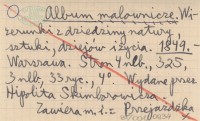 Album malownicze. Wi-
zerunki z dziedziny natury,
sztuki, dziejów i życia. 1849.-
Warszawa. Stron 4 nlb., 325,
3 nlb, 33 ryc., 40. Wydane przez
Hipolita Skimborowicza
Zawiera m. i.: Przejażdżka